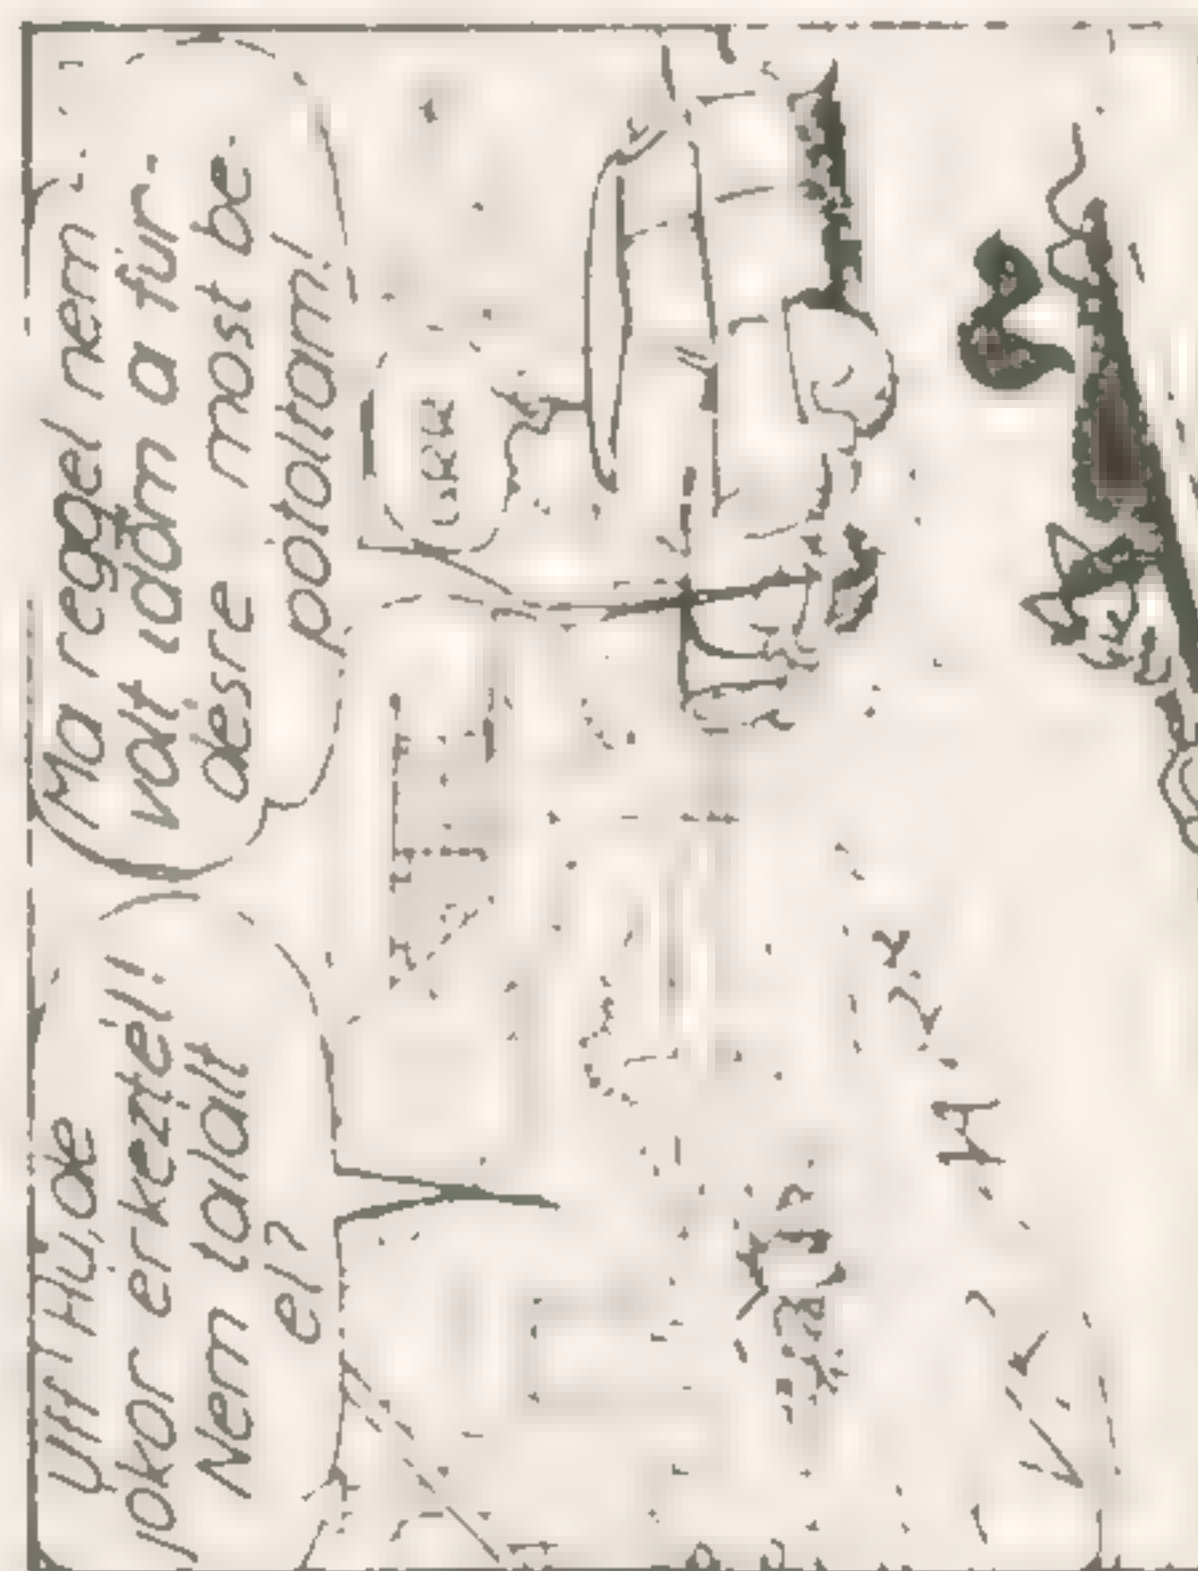 Uff! Hú, de
jókor érkeztél!
Nem talált
el?
Ma reggel nem
volt időm a für-
désre most be-
pótoltam!